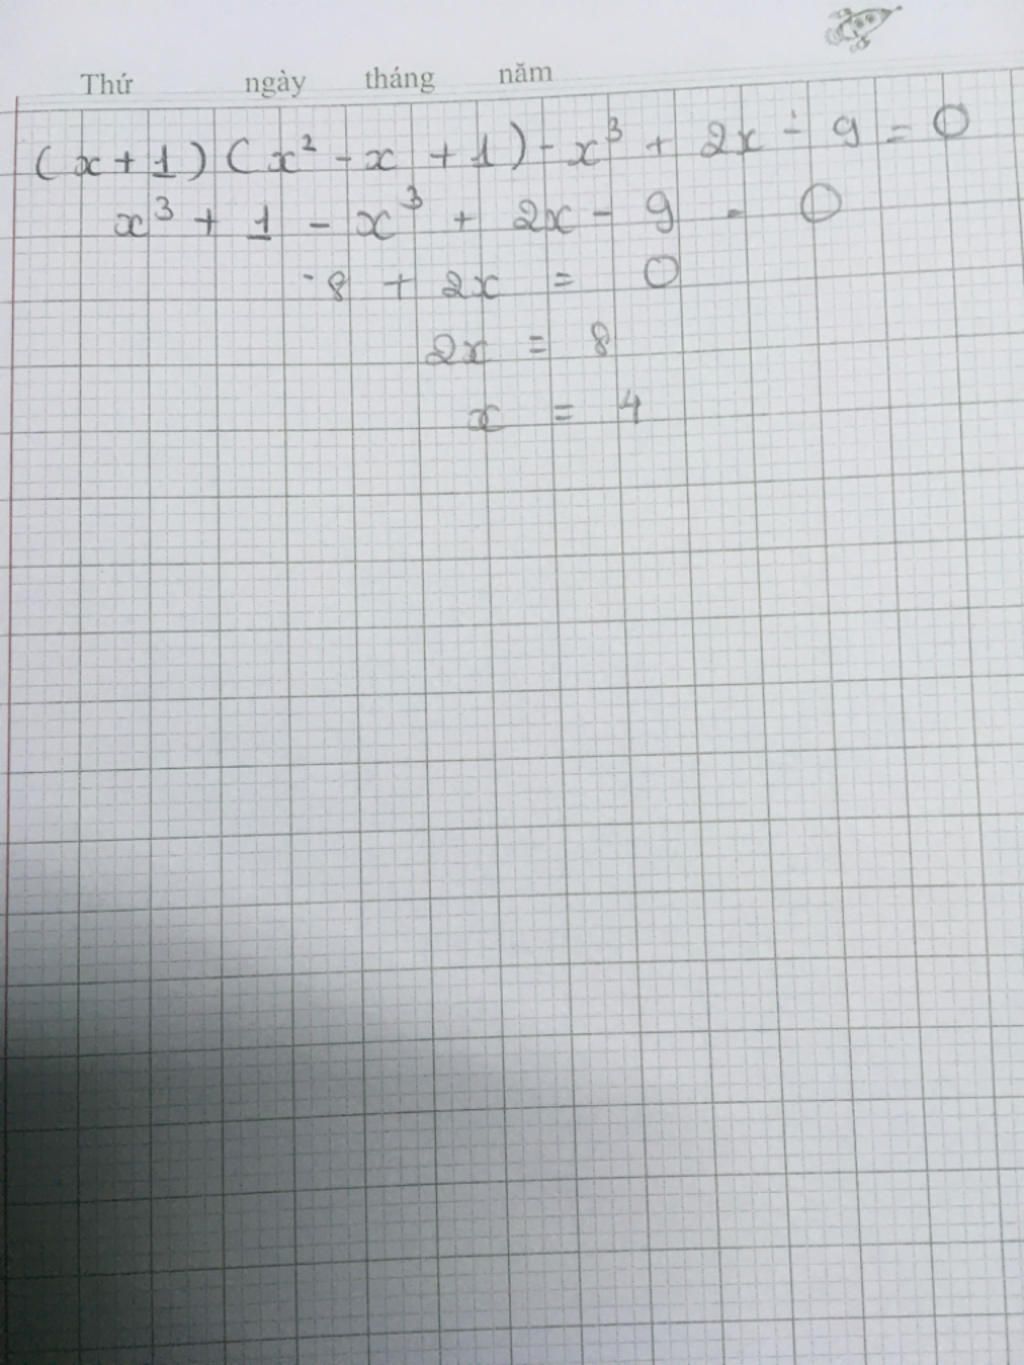 Thứ ngày tháng năm
(x + 1) (x² - x + 1) - x³ + 2x - 9 = 0
x³ + 1 - x³ + 2x - 9 = 0
-8 + 2x = 0
2x = 8
x = 4